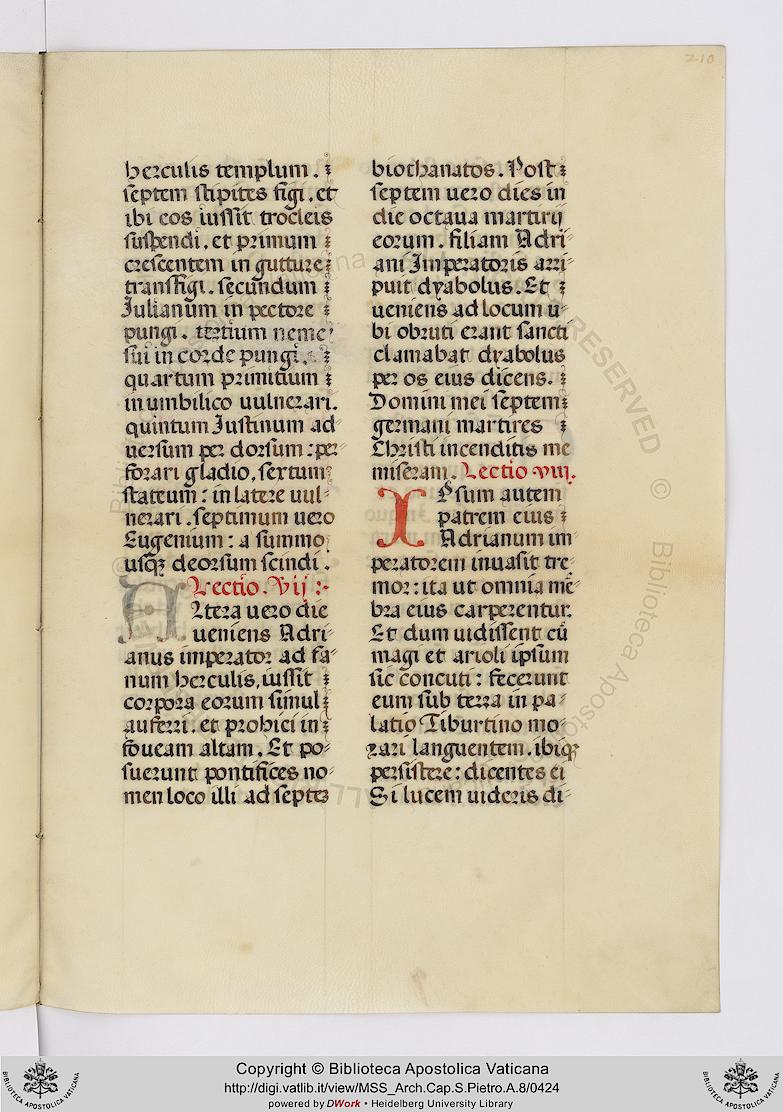 210
herculis templum.
septem stipites figi. et
ibi eos iussit trocleis
suspendi. et primum
crescentem in gutture
transfigi. secundum
Julianum in pectore
pungi. tertium neme
sui in corde pungi.
quartum primitium
in umbilico uulnerari.
quintum Justinum ad
uersum per dorsum: per
forari gladio. sextum
stateum: in latere uul
nerari. septimum uero
Eugenium: a summo
usqꝫ deorsum scindi.
Lectio. Vij :-
Altera uero die
ueniens Adri
anus imperator ad fa
num herculis, iussit
corpora eorum simul
auferri. et prohici in
foueam altam. Et po
suerunt pontifices no
men loco illi ad septeꝫ
biothanatos. Post
septem uero dies in
die octaua martirij
eorum. filiam Adri
ani Imperatoris arri
puit dyabolus. Et
ueniens ad locum u
bi obruti erant sancti
clamabat dyabolus
per os eius dicens.
Domini mei septem
germani martires
Christi incenditis me
miseram. Lectio viij.
Ipsum autem
patrem eius
Adrianum im
peratorem inuasit tre
mor: ita ut omnia mē
bra eius carperentur.
Et dum uidissent cū
magi et arioli ipsum
sic concuti: fecerunt
eum sub terra in pa
latio Tiburtino mo
rari languentem. ibiqꝫ
persistere: dicentes ei
Si lucem uideris di
Copyright © Biblioteca Apostolica Vaticana
http://digi.vatlib.it/view/MSS_Arch.Cap.S.Pietro.A.8/0424
powered by DWork • Heidelberg University Library
BIBLIOTECA APOSTOLICA VATICANA
BIBLIOTECA APOSTOLICA VATICANA